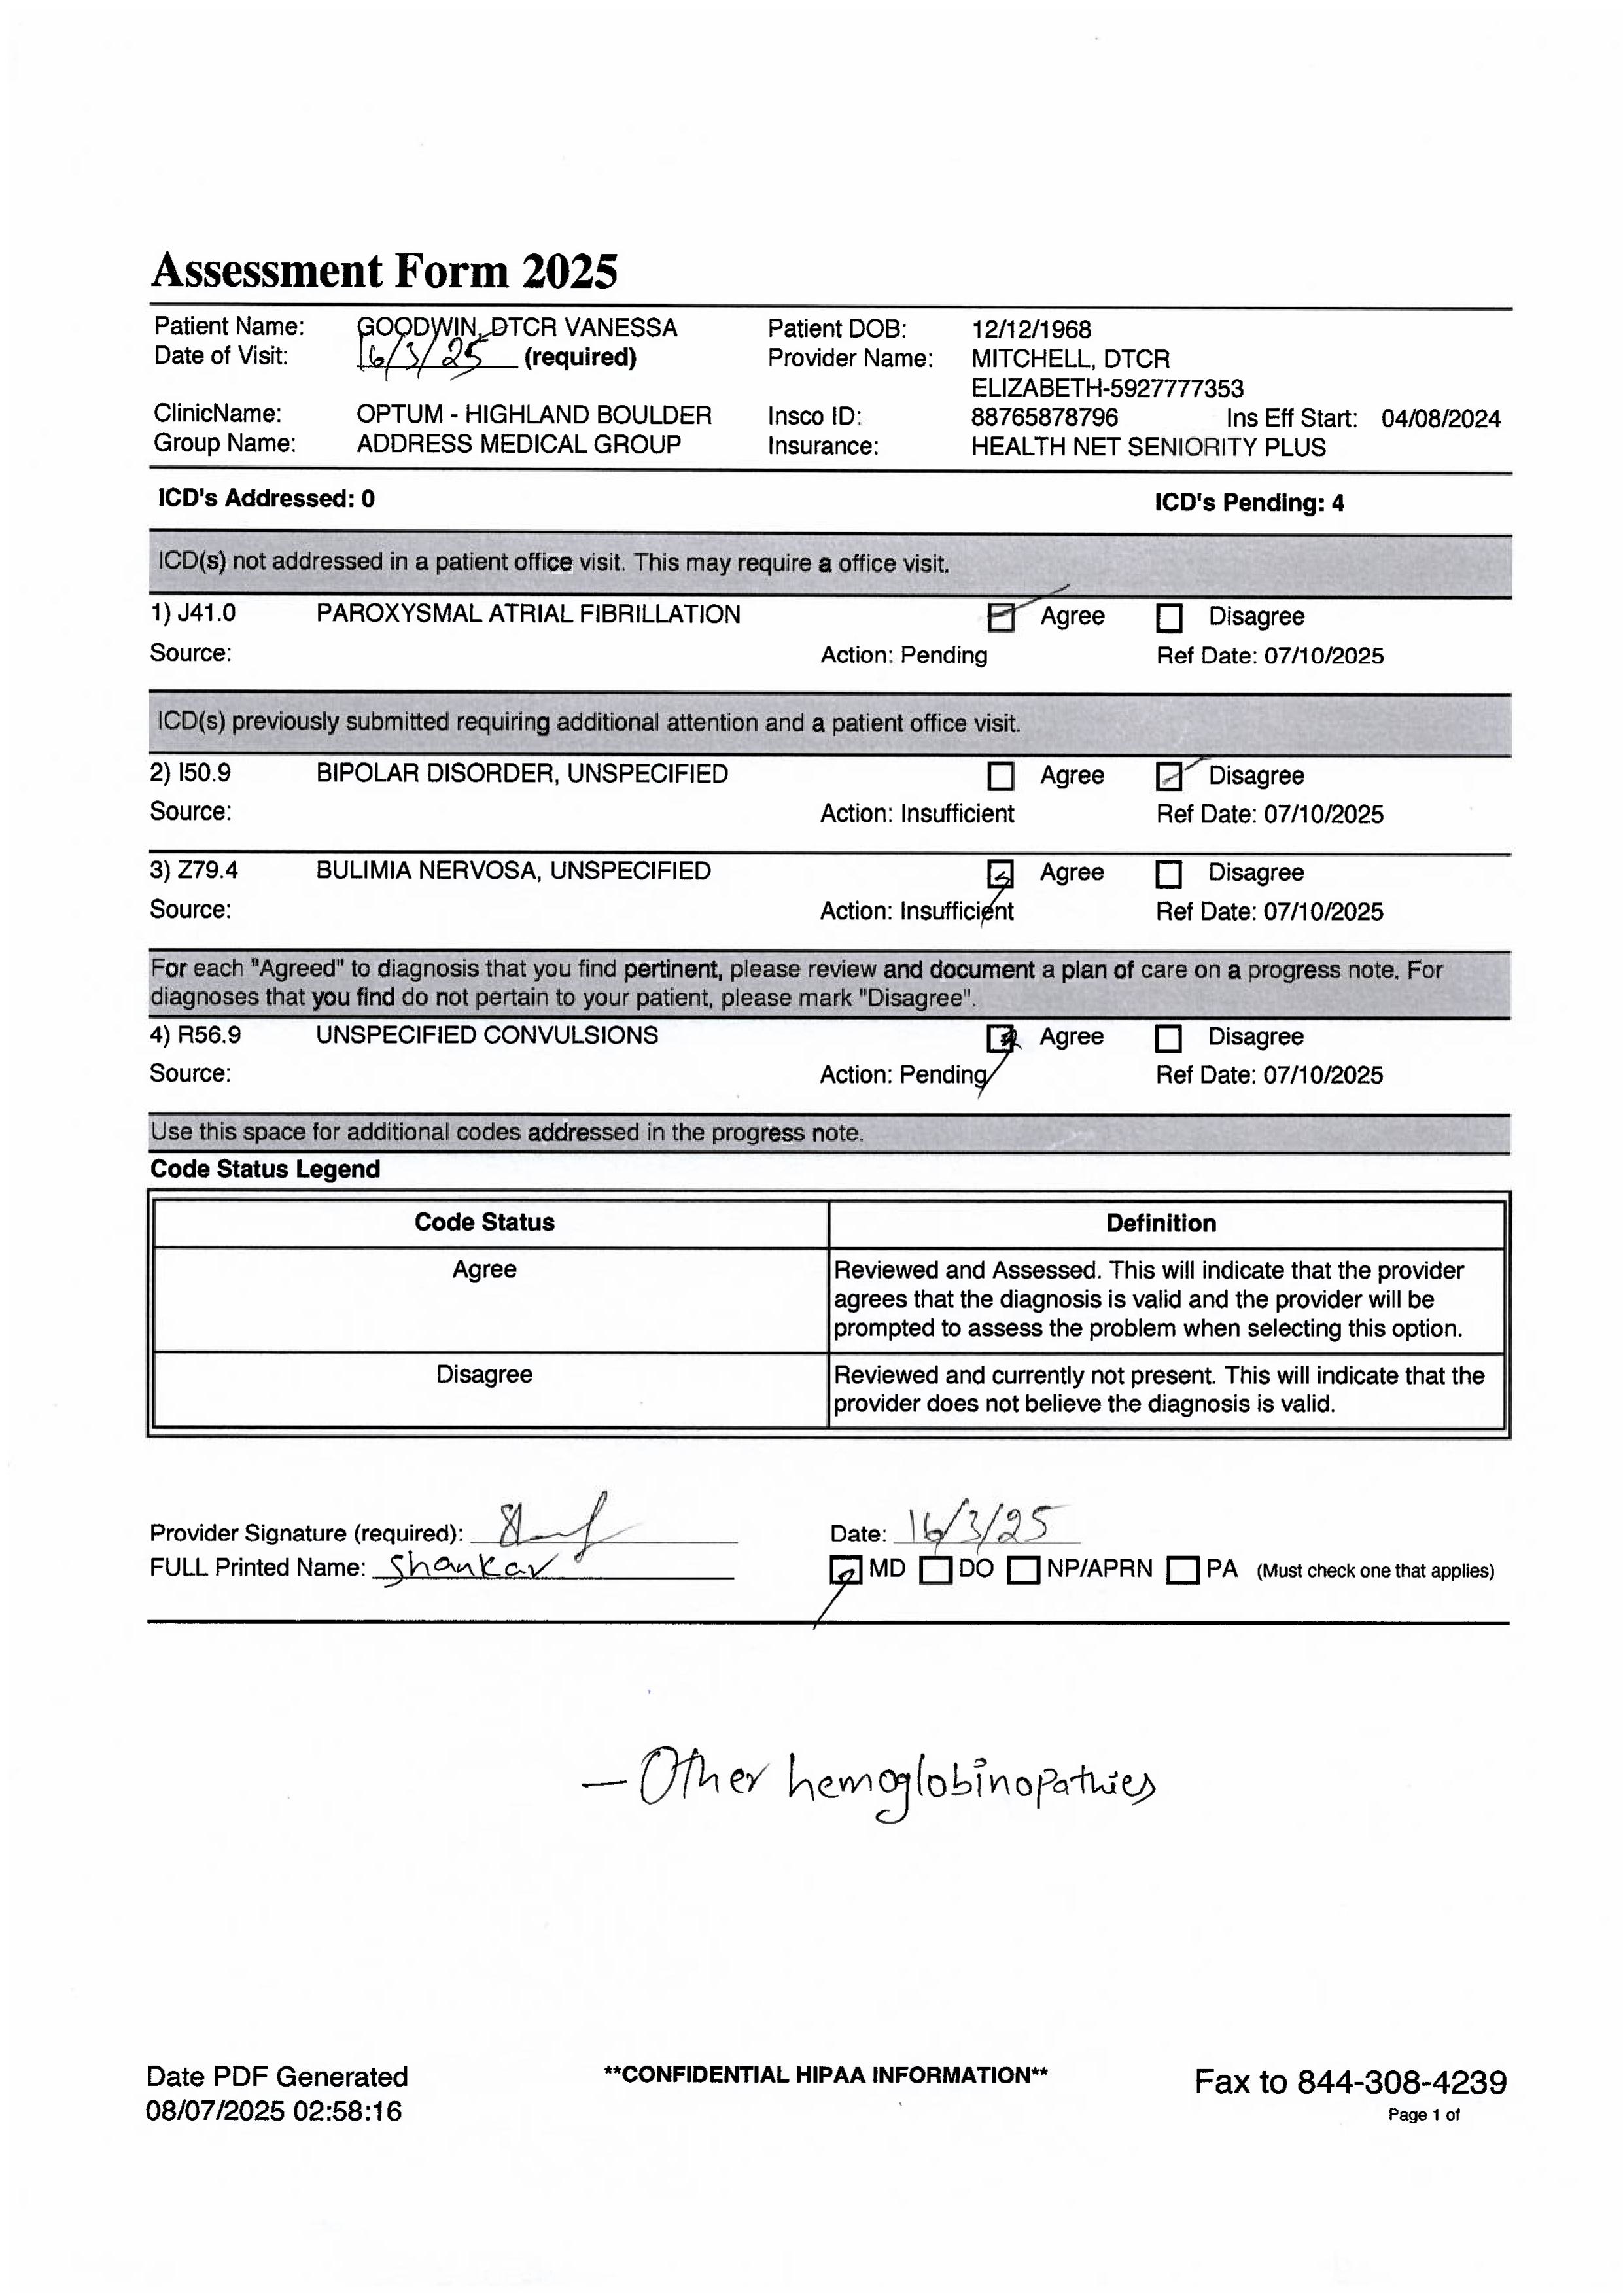 Assessment Form 2025
Patient Name: GOODWIN, DTCR VANESSA Patient DOB: 12/12/1968
Date of Visit: 16/3/25 (required) Provider Name: MITCHELL, DTCR
ELIZABETH-5927777353
ClinicName: OPTUM - HIGHLAND BOULDER Insco ID: 88765878796 Ins Eff Start: 04/08/2024
Group Name: ADDRESS MEDICAL GROUP Insurance: HEALTH NET SENIORITY PLUS
ICD's Addressed: 0 ICD's Pending: 4
ICD(s) not addressed in a patient office visit. This may require a office visit.
1) J41.0 PAROXYSMAL ATRIAL FIBRILLATION Agree Disagree
Source: Action: Pending Ref Date: 07/10/2025
ICD(s) previously submitted requiring additional attention and a patient office visit.
2) I50.9 BIPOLAR DISORDER, UNSPECIFIED Agree Disagree
Source: Action: Insufficient Ref Date: 07/10/2025
3) Z79.4 BULIMIA NERVOSA, UNSPECIFIED Agree Disagree
Source: Action: Insufficient Ref Date: 07/10/2025
For each "Agreed" to diagnosis that you find pertinent, please review and document a plan of care on a progress note. For
diagnoses that you find do not pertain to your patient, please mark "Disagree".
4) R56.9 UNSPECIFIED CONVULSIONS Agree Disagree
Source: Action: Pending Ref Date: 07/10/2025
Use this space for additional codes addressed in the progress note.
Code Status Legend
Code Status Definition
Agree Reviewed and Assessed. This will indicate that the provider
agrees that the diagnosis is valid and the provider will be
prompted to assess the problem when selecting this option.
Disagree Reviewed and currently not present. This will indicate that the
provider does not believe the diagnosis is valid.
Provider Signature (required): Date: 16/3/25
FULL Printed Name: Shankar MD DO NP/APRN PA (Must check one that applies)
- Other hemoglobinopathies
Date PDF Generated **CONFIDENTIAL HIPAA INFORMATION** Fax to 844-308-4239
08/07/2025 02:58:16 Page 1 of